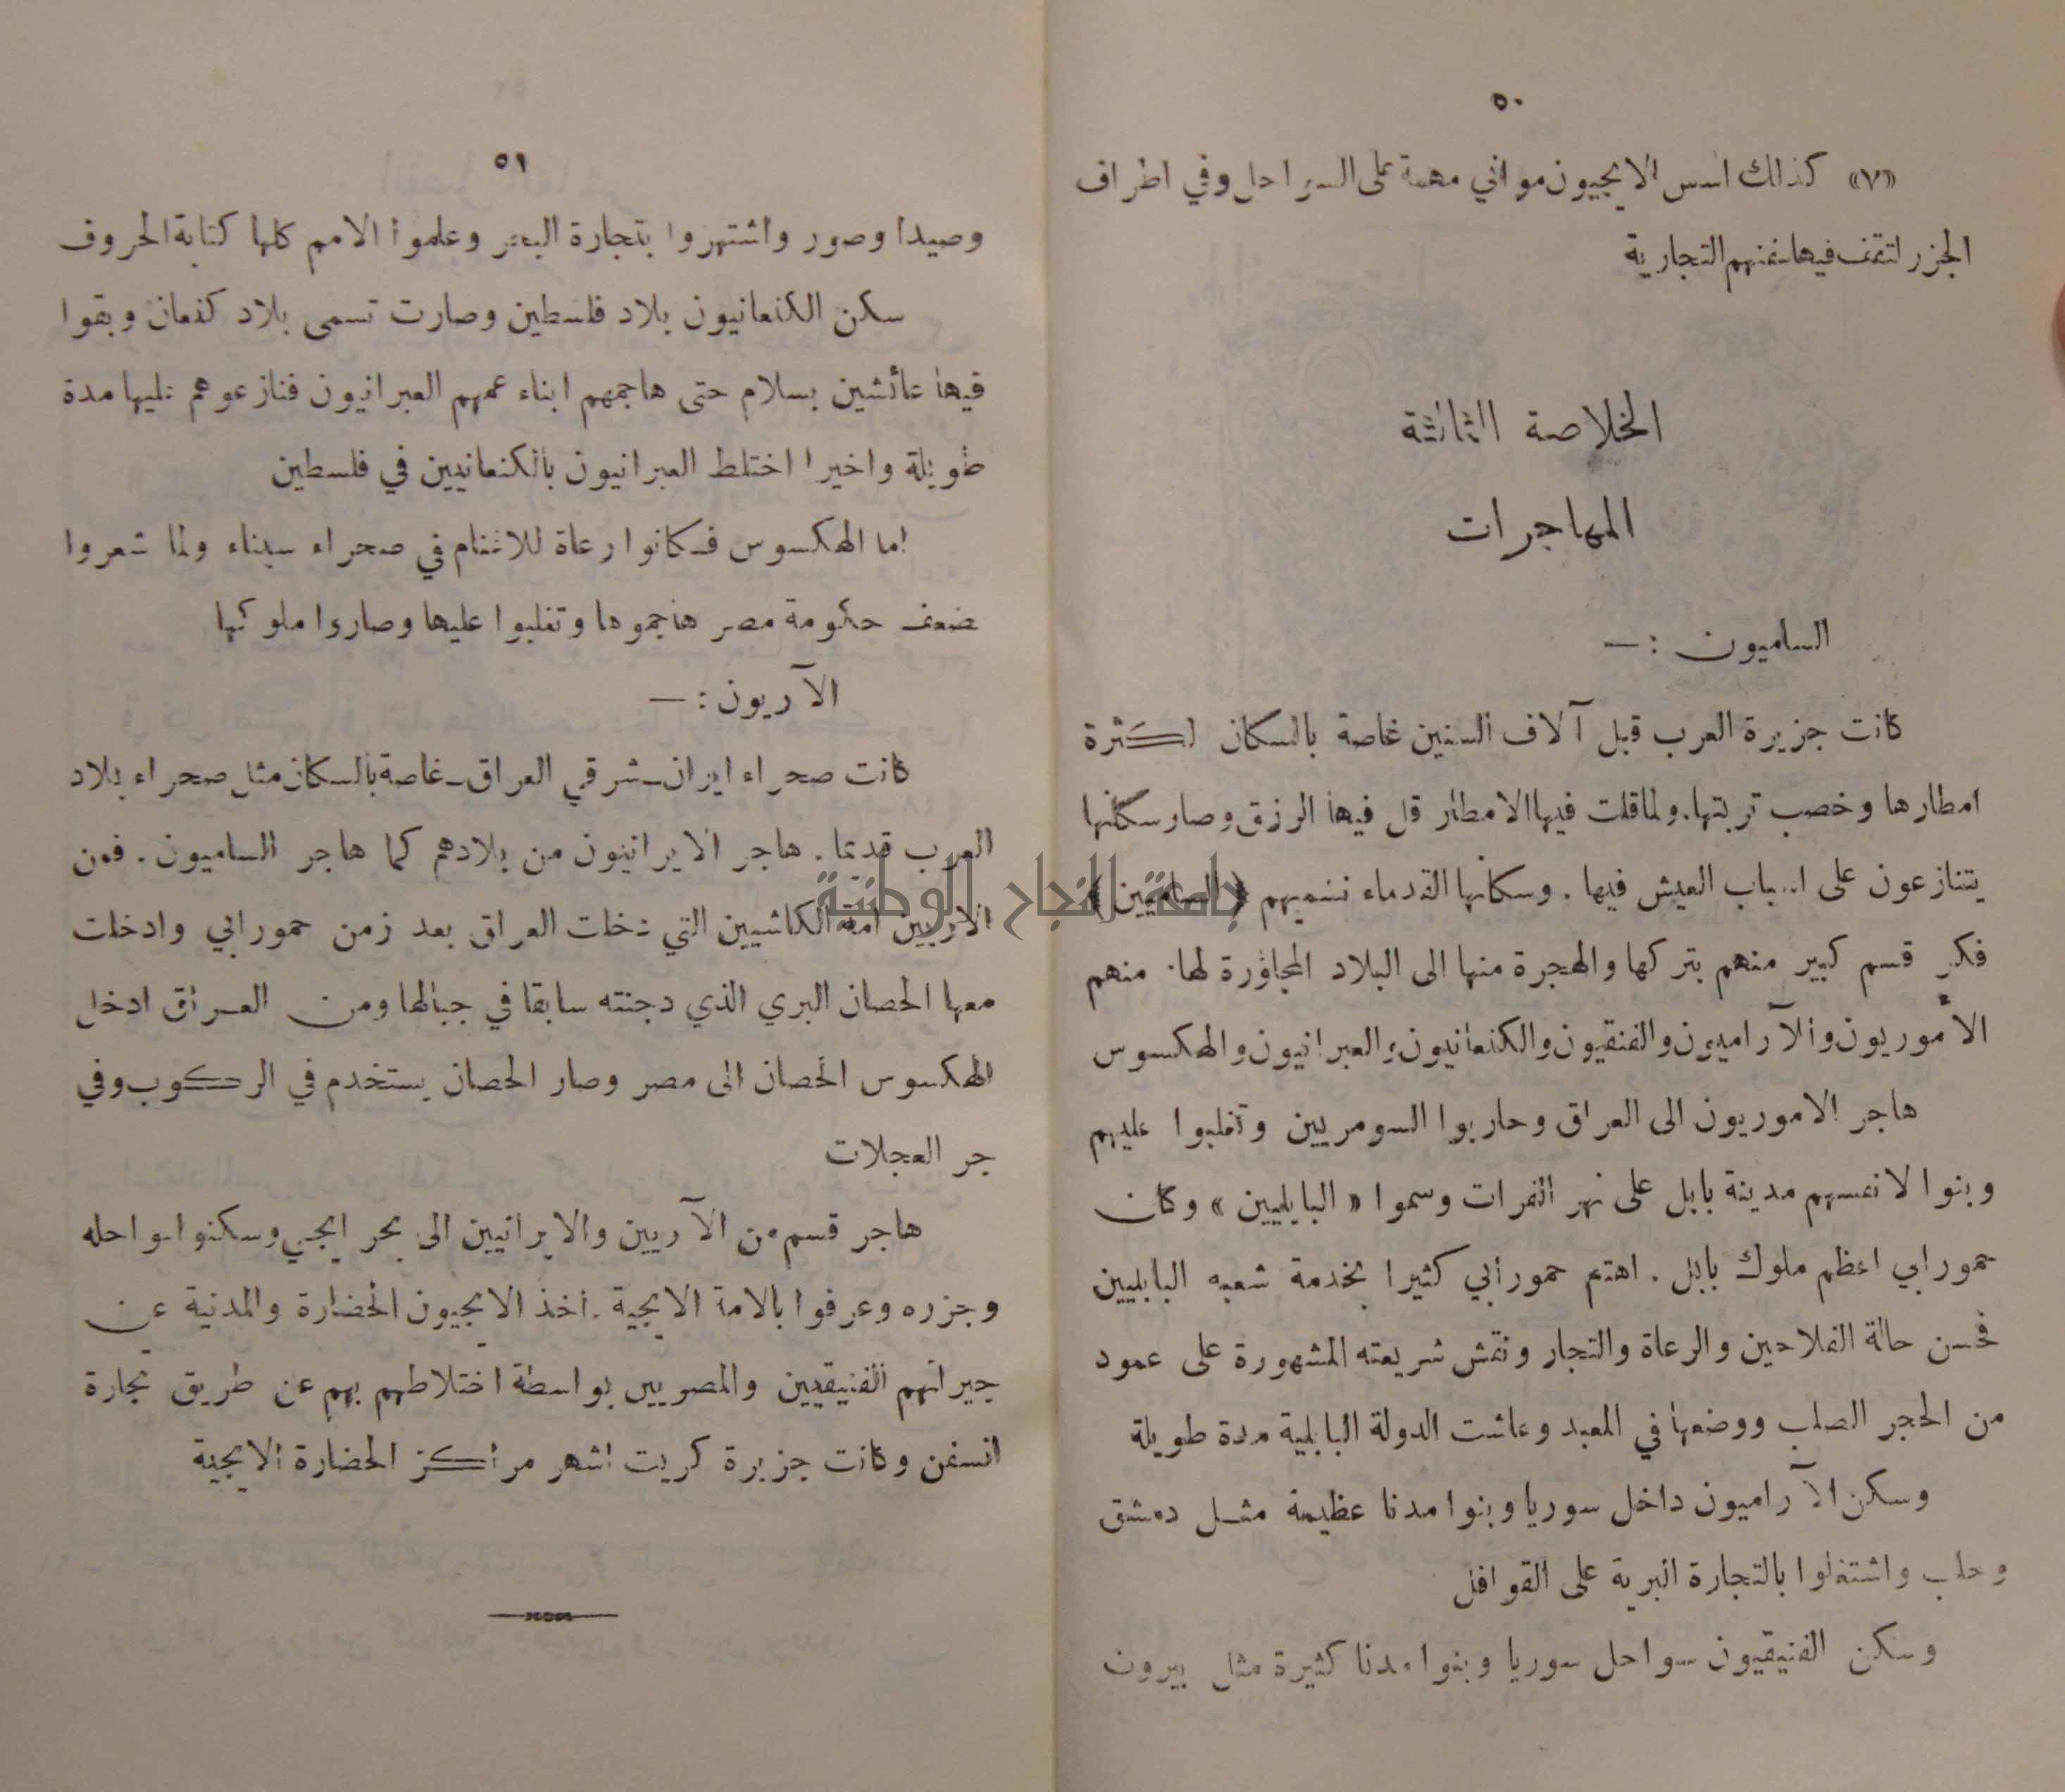 ٥٠
«٧» كذلك اسس الايجيون مواني مهمة على السواحل وفي اطراف
الجزر لتقف فيها سفنهم التجارية
الخلاصة الثالثة
المهاجرات
الساميون : —
كانت جزيرة العرب قبل آلاف السنين غاصة بالسكان لكثرة
امطارها وخصب تربتها. ولما قلت فيها الامطار قل فيها الرزق وصار سكانها
يتنازعون على اسباب العيش فيها . وسكانها القدماء نسميهم (الساميين)
فكر قسم كبير منهم بتركها والهجرة منها الى البلاد المجاورة لها . منهم
الأموريون والآراميون والفنقيون والكنعانيون والعبرانيون والهكسوس
هاجر الاموريون الى العراق وحاربوا السومريين وتغلبوا عليهم
وبنوا لانفسهم مدينة بابل على نهر الفرات وسموا « البابليين » وكان
حمورابي اعظم ملوك بابل . اهتم حمورابي كثيرا بخدمة شعبه البابليين
فحسن حالة الفلاحين والرعاة والتجار ونقش شريعته المشهورة على عمود
من الحجر الصلب ووضعها في المعبد وعاشت الدولة البابلية مدة طويلة
وسكن الآراميون داخل سوريا وبنوا مدنا عظيمة مثل دمشق
وحلب واشتغلوا بالتجارة البرية على القوافل
وسكن الفنيقيون سواحل سوريا وبنوا مدنا كثيرة مثل بيروت
٥١
وصيدا وصور واشتهروا بتجارة البحر وعلموا الامم كلها كتابة الحروف
سكن الكنعانيون بلاد فلسطين وصارت تسمى بلاد كنعان وبقوا
فيها عائشين بسلام حتى هاجمهم ابناء عمهم العبرانيون فنازعوهم عليها مدة
طويلة واخيرا اختلط العبرانيون بالكنعانيين في فلسطين
اما الهكسوس فكانوا رعاة للاغنام في صحراء سيناء ولما شعروا
بضعف حكومة مصر هاجموها وتغلبوا عليها وصاروا ملوكها
الآريون : —
كانت صحراء ايران ـ شرقي العراق ـ غاصة بالسكان مثل صحراء بلاد
العرب قديما . هاجر الايرانيون من بلادهم كما هاجر الساميون . فمن
الاريين امة الكاشيين التي دخلت العراق بعد زمن حمورابي وادخلت
معها الحصان البري الذي دجنته سابقا في جبالها ومن العراق ادخل
الهكسوس الحصان الى مصر وصار الحصان يستخدم في الركوب وفي
جر العجلات
هاجر قسم من الآريين والايرانيين الى بحر ايجي وسكنوا سواحله
وجزره وعرفوا بالامة الايجية . اخذ الايجيون الحضارة والمدنية عن
جيرانهم الفنيقيين والمصريين بواسطة اختلاطهم بهم عن طريق تجارة
السفن وكانت جزيرة كريت اشهر مراكز الحضارة الايجية
جامعة النجاح الوطنية